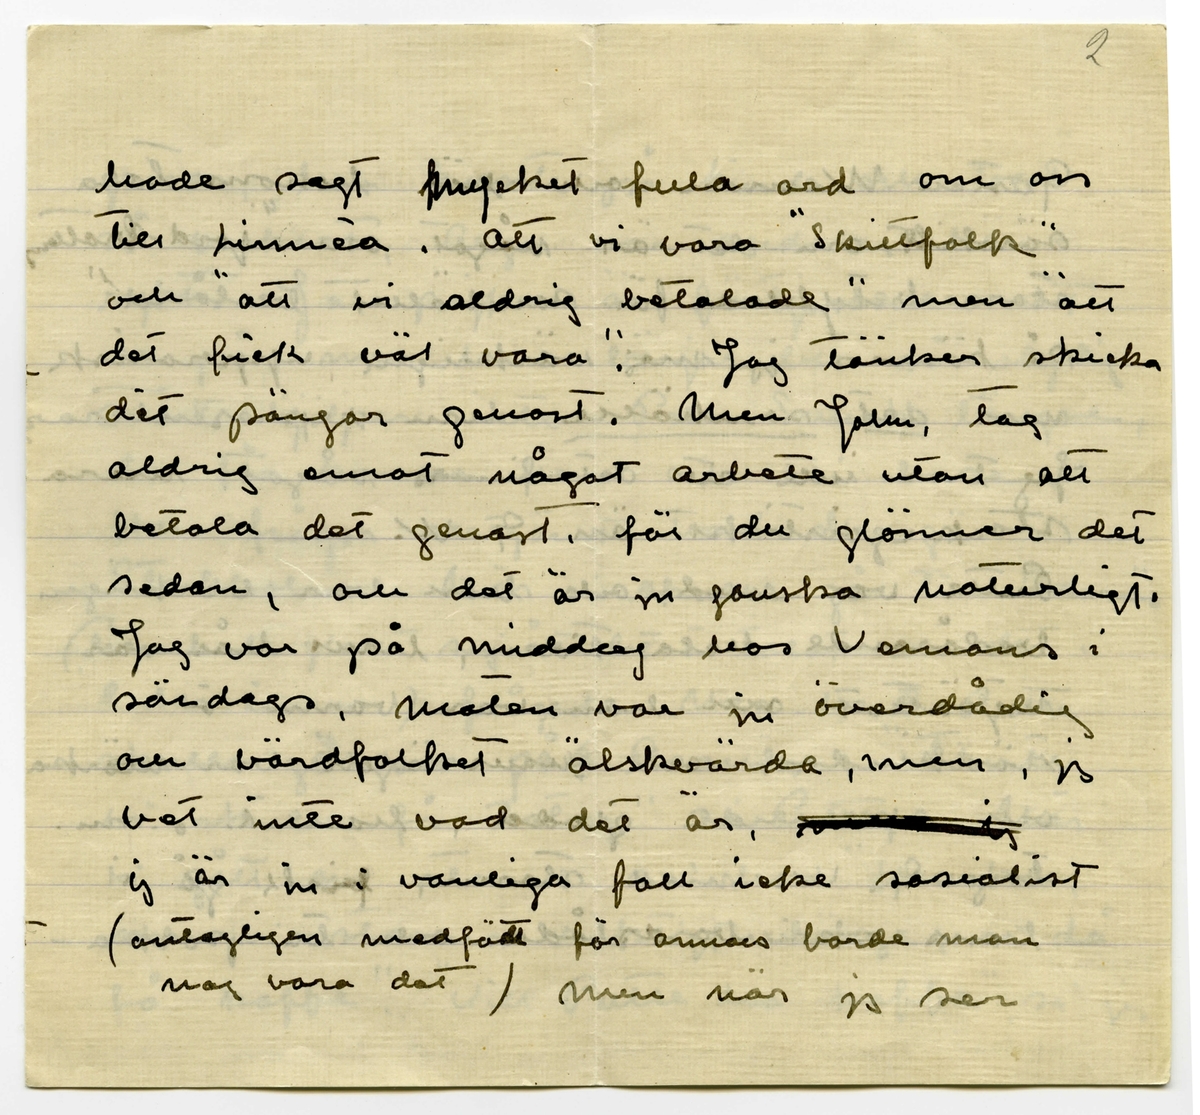 2
hade sagt mycket fula ord om oss
till Linnéa. Att vi vara "Skitfolk"
och "att vi aldrig betalade" men "att
det fick väl vara". Jag tänker skicka
det pängar genast. Men John, tag
aldrig emot något arbete utan att
betala det genast, för du glömmer det
sedan, och det är ju ganska naturligt.
Jag var på middag hos Vemans i
söndags, maten var ju överdådig
och värdfolket älskvärda, men, jg
vet inte vad det är,
jg är ju i vanliga fall icke sosialist
(antagligen medfött för annars borde man
nog vara det) men när jg ser